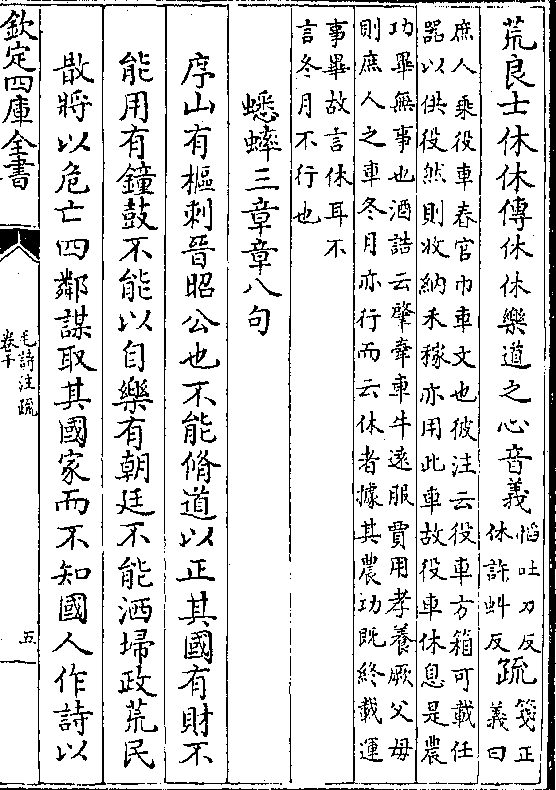 荒良士休休傳休休樂道之心音義
慆吐刀反
休許虯反
疏
箋正
義曰
庶人乘役車春官巾車文也彼注云役車方箱可載任
器以供役然則收納禾稼亦用此車故役車休息是農
功畢無事也酒誥云肇牽車牛遠服賈用孝養厥父母
則庶人之車冬月亦行而云休者據其農功既終載運
事畢故言休耳不
言冬月不行也
蟋蟀三章章八句
序山有樞刺晉昭公也不能脩道以正其國有財不
能用有鐘鼓不能以自樂有朝廷不能洒埽政荒民
散將以危亡四鄰謀取其國家而不知國人作詩以
欽定四庫全書
毛詩注疏
卷十
五